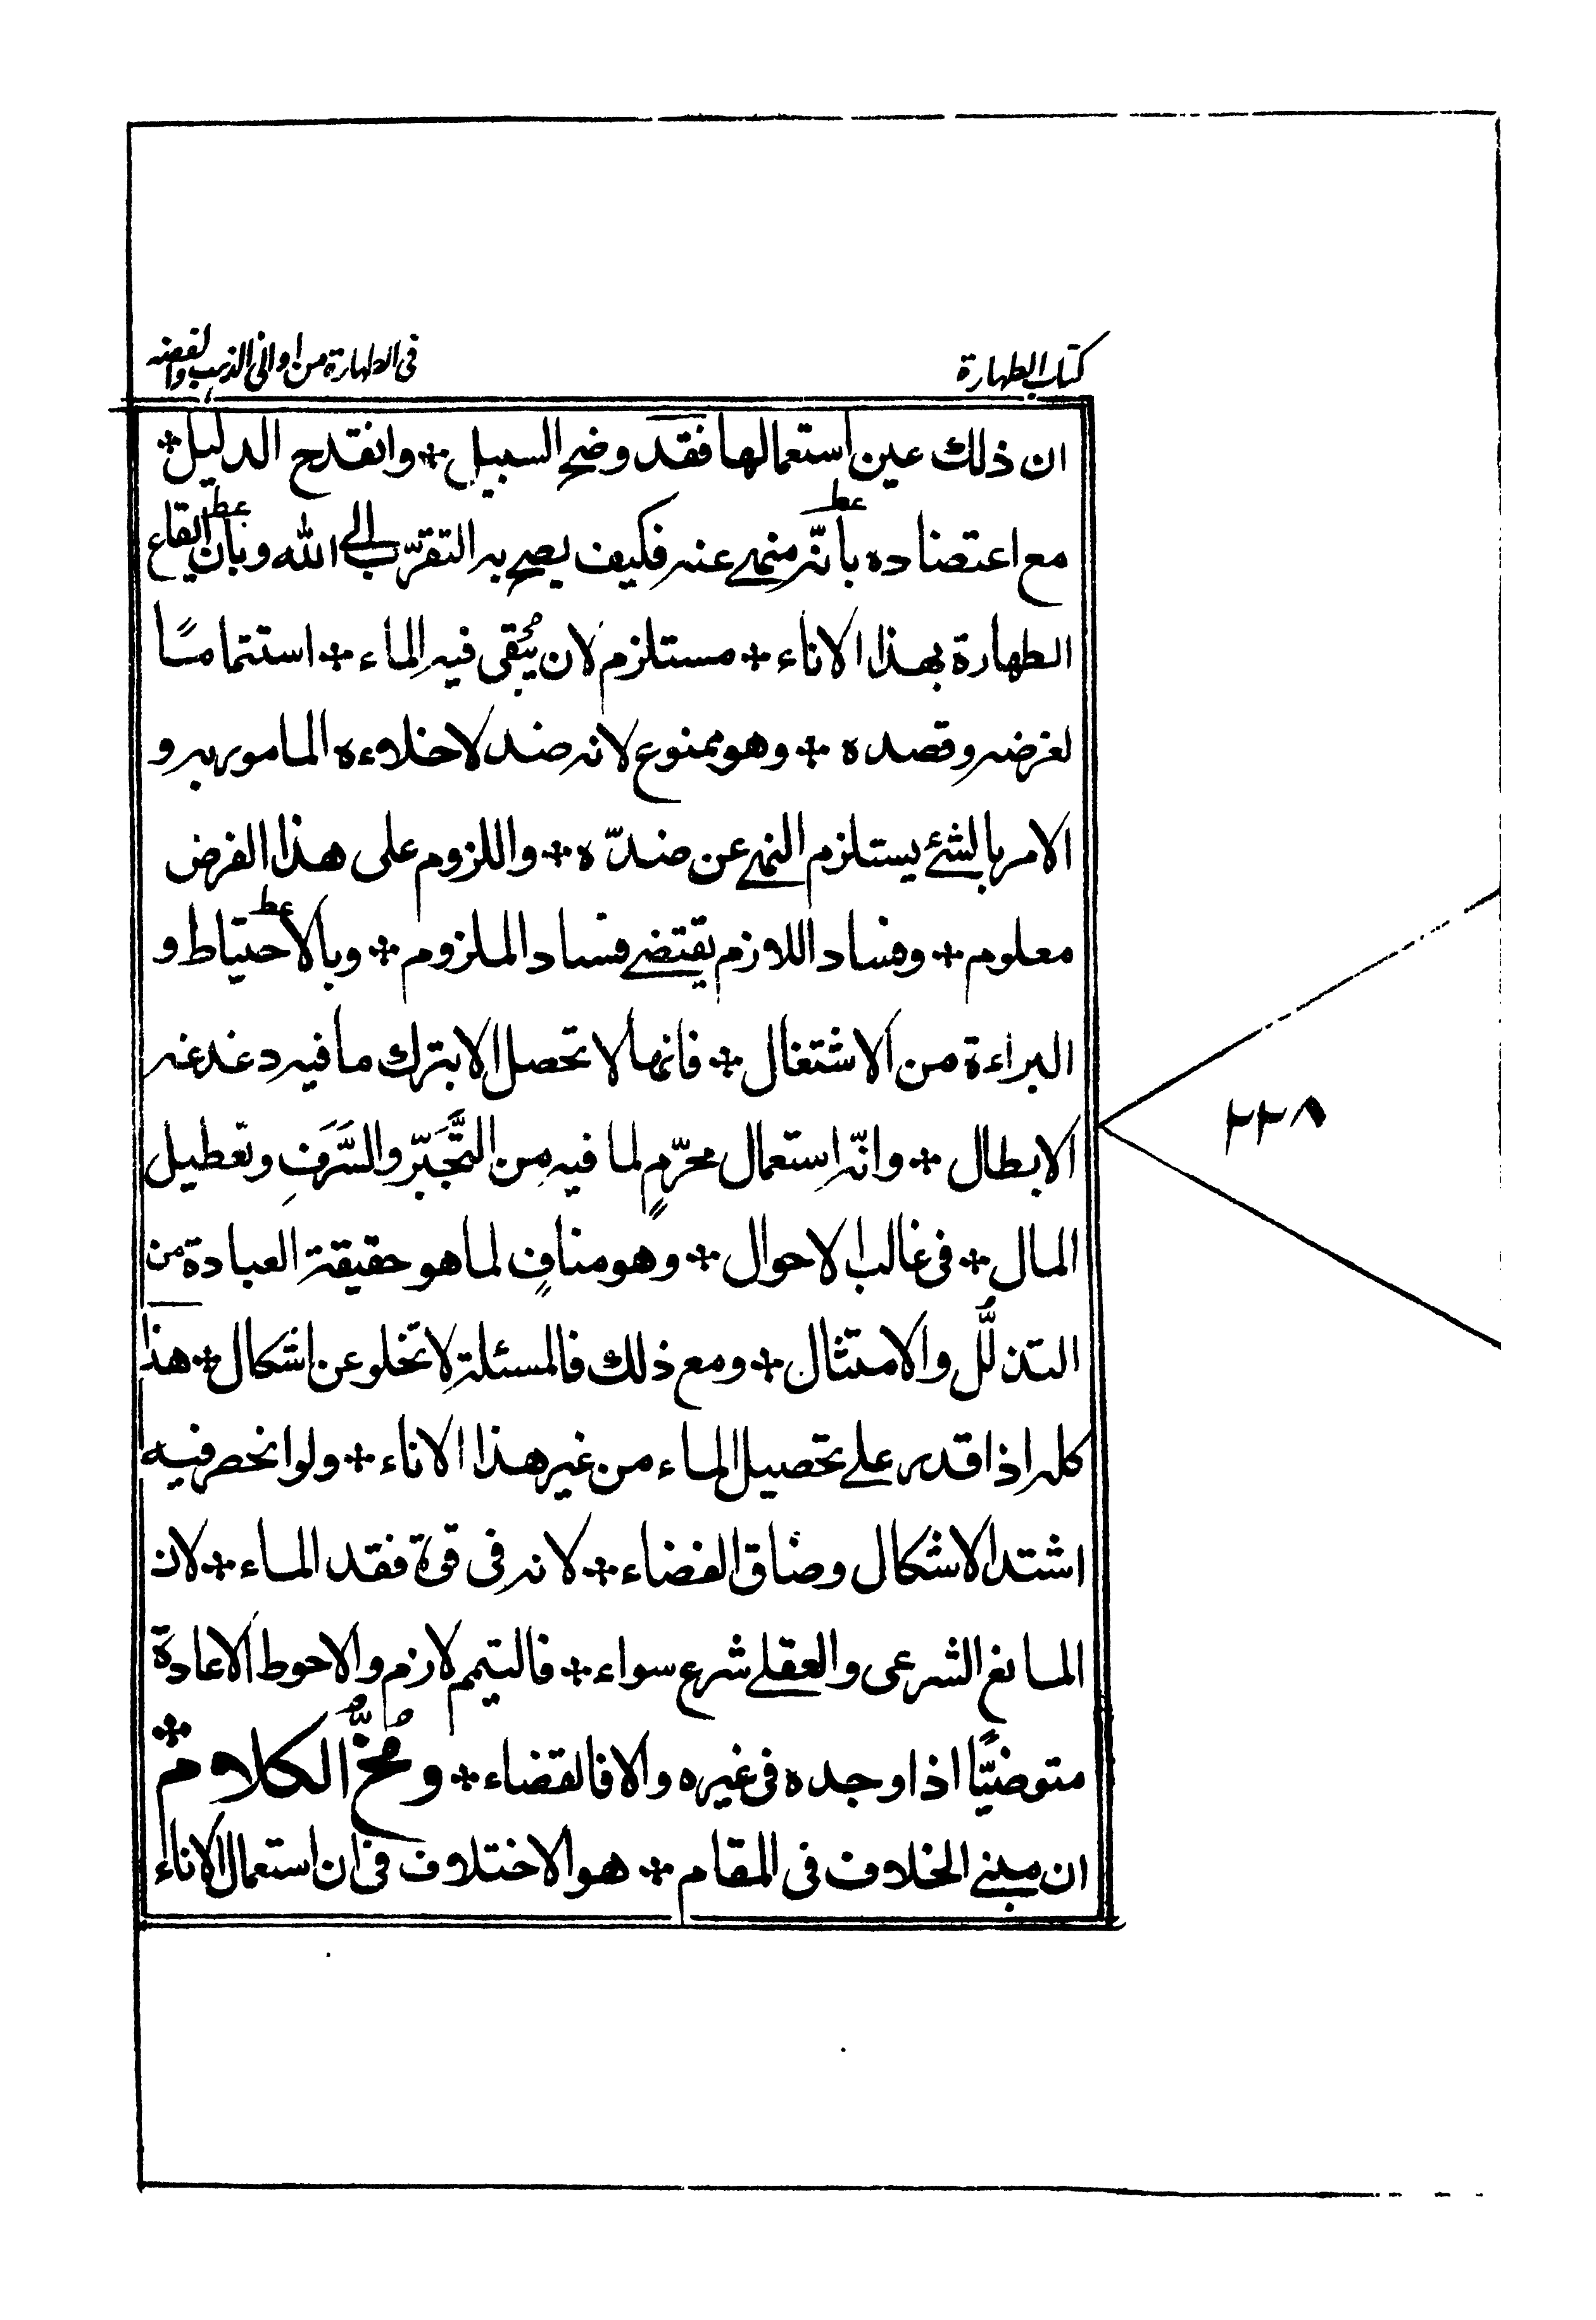 كتاب الطهارة
فى الطهارة من اوانى الذهب والفضه
ان ذلك عين استعمالها فقد وضح السبيل ❊ وانقدح الدليل ❊
مع اعتضاده بأنّه منهى عنه فكيف يصح به التقرّب الى الله وبأن ايقاع
الطهارة بهذا الاناء ❊ مستلزم لان يُبقى فيه الماء ❊ استتماماً
لغرضه وقصده ❊ وهو ممنوع لانه ضد لاخلاءه المامور به و
الامر بالشئ يستلزم النهى عن ضدّه ❊ واللزوم على هذا الفرض
معلوم ❊ وفساد اللازم يقتضى فساد الملزوم ❊ وبالاحتياط و
البراءة من الاشتغال ❊ فانها لا تحصل الا بترك ما فيه دغدغه
الابطال ❊ وانّه استعمال محرّمٍ لما فيه مِن التَّجَبّر والسَّرَفِ وتعطيل
المال ❊ فى غالب الاحوال ❊ وهو منافٍ لما هو حقيقة العبادة من
التذلُّل والامتثال ❊ ومع ذلك فالمسئلة لا تخلو عن اشكال ❊ هذا
كله اذا قدر على تحصيل الماء من غير هذا الاناء ❊ ولو انحصر فيه
اشتد الاشكال وضاق الفضاء ❊ لانه فى قوة فقد الماء ❊ لان
المانع الشرعى والعقلى شرع سواء ❊ فالتيمم لازم والاحوط الاعادة
متوضيًّا اذا وجده فى غيره والا فالقضاء ❊ ومُخُّ الكلام ❊
ان مبنى الخلاف فى المقام ❊ هو الاختلاف فى ان استعمال الاناء
٢٢٨